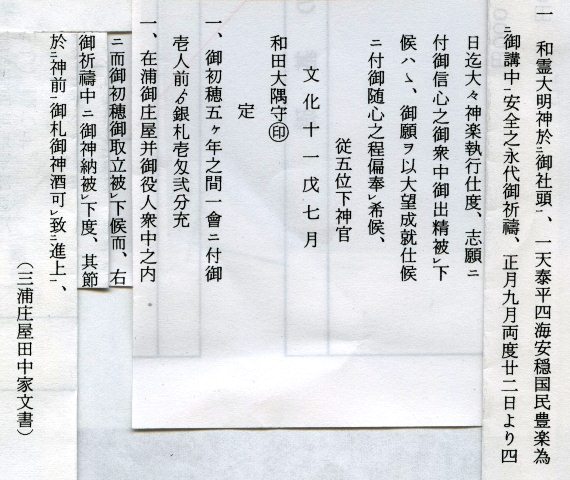 一 和霊大明神於ニ御社頭一、一天泰平四海安穏国民豊楽為
ニ御講中一安全之永代御祈禱、正月九月両度廿二日より四
日迄大々神楽執行仕度、志願ニ
付御信心之御衆中御出精被レ下
候ハヽ、御願ヲ以大望成就仕候
ニ付御随心之程偏奉レ希候、
従五位下神官
文化十一戊七月
和田大隅守㊞
定
一、御初穂五ヶ年之間一會ニ付御
壱人前ゟ銀札壱匁弐分充
一、在浦御庄屋并御役人衆中之内
ニ而御初穂御取立被レ下候而、右
御祈禱中ニ御神納被レ下度、其節
於ニ神前一御札御神酒可レ致ニ進上一、
（三浦庄屋田中家文書）